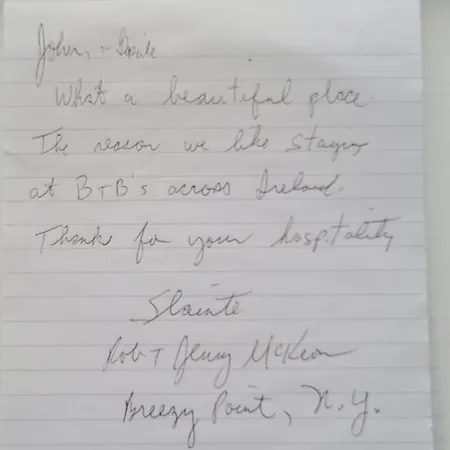 John,
What a beautiful place.
The reason we like staying
at B+B's across Ireland.
Thanks for your hospitality
Slainte
Rob + Jenny McKeon
Breezy Point, N.Y.